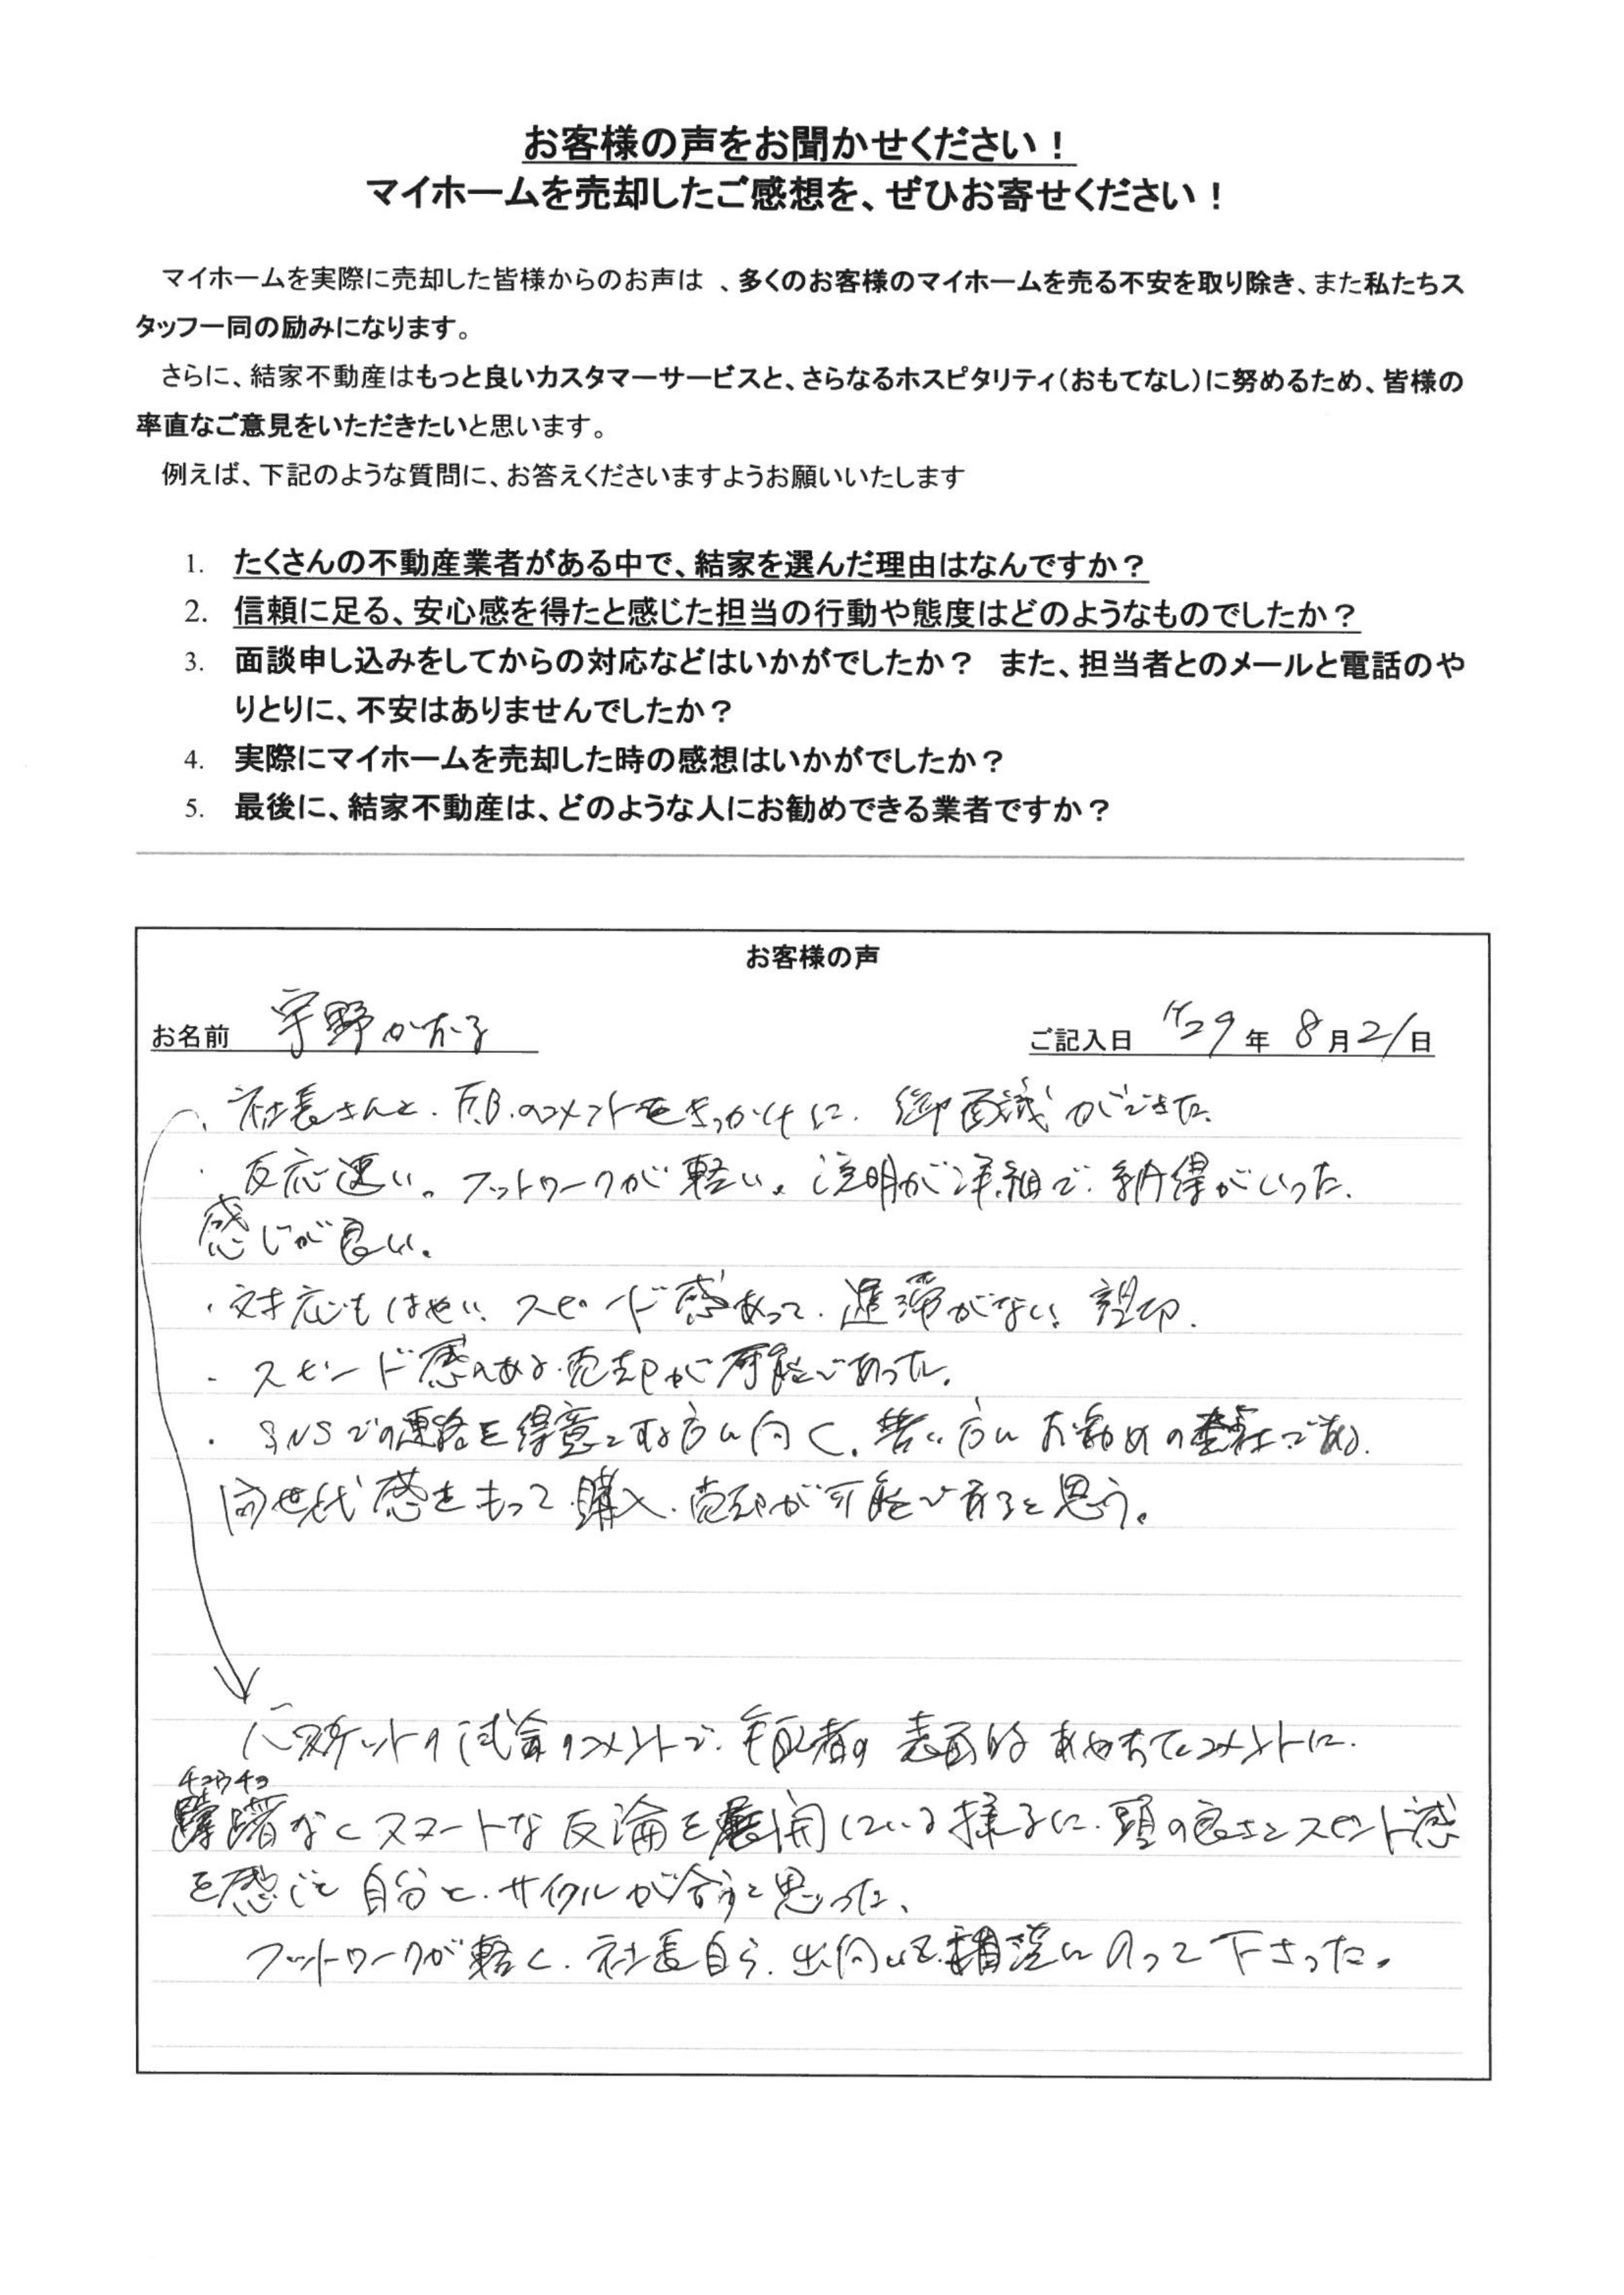 お客様の声をお聞かせください！
マイホームを売却したご感想を、ぜひお寄せください！
マイホームを実際に売却した皆様からのお声は 、多くのお客様のマイホームを売る不安を取り除き、また私たちス
タッフ一同の励みになります。
さらに、結家不動産はもっと良いカスタマーサービスと、さらなるホスピタリティ（おもてなし）に努めるため、皆様の
率直なご意見をいただきたいと思います。
例えば、下記のような質問に、お答えくださいますようお願いいたします
1. たくさんの不動産業者がある中で、結家を選んだ理由はなんですか？
2. 信頼に足る、安心感を得たと感じた担当の行動や態度はどのようなものでしたか？
3. 面談申し込みをしてからの対応などはいかがでしたか？ また、担当者とのメールと電話のや
りとりに、不安はありませんでしたか？
4. 実際にマイホームを売却した時の感想はいかがでしたか？
5. 最後に、結家不動産は、どのような人にお勧めできる業者ですか？
お客様の声
お名前 宇野かおる
ご記入日 H29年 8月21日
・社長さんと、F.B.のコメントをきっかけに、御面識ができた。
・反応速い。フットワークが軽い。説明が詳細で、納得がいった。
感じが良い。
・対応もはやい、スピード感あって、遅滞がない
・スピード感のある売却が可能であった。
・SNSでの連絡を得意とする方に向く。若い方にお勧めの会社である。
同世代感をもって購入、売却が可能であると思う。
バスケットの試合のコメントで、年配者の表面的なコメントに、
チュウチョ
躊躇なくスマートな反論を展開している様子に、頭の良さとスピード感
を感じて自分と、サイクルが合うと思った。
フットワークが軽く、社長自ら、出向いて相談にのって下さった。